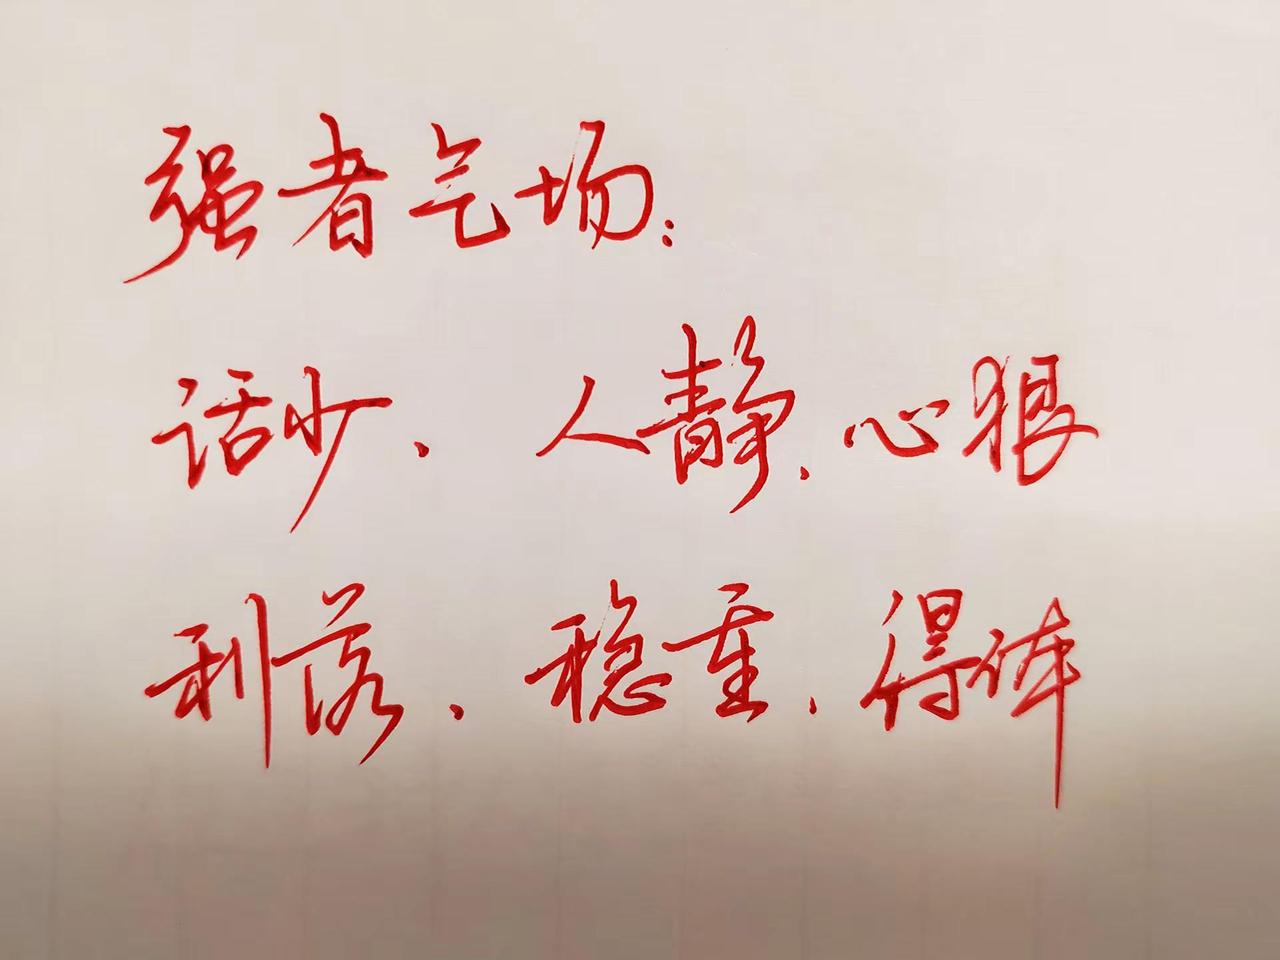 强者气场：
话少、人静、心狠
利落、稳重、得体